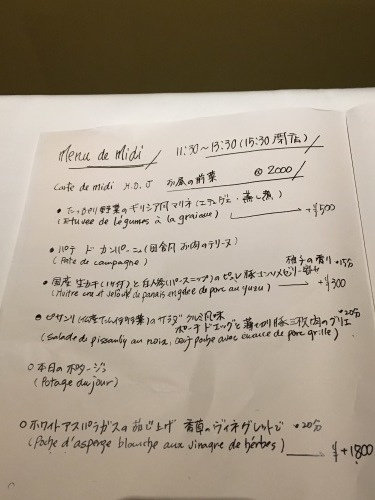 Menu de Midi 11:30～13:30(15:30 閉店)
Carte de midi H.D.J お昼の前菜 @ 2000
• たっぷり野菜のギリシア風マリネ(エチュヴェ・蒸し煮)
(Etuvée de légumes à la graique) → +¥500
• パテ ド カンパーニュ(田舎風 お肉のテリーヌ)
(Pate de campagne)
柚子の香り •15分
• 国産 生カキ(1ヶ付)と (パースニップ)のピュレ 豚コンソメゼリー寄せ
(Huitre cru et velouté de panais en gelée de porc au yuzu) → +¥300
• ピサンリ( タンポポ)のサラダ クルミ風味 •20分
ポーチドエッグと薄切り豚三枚肉のグリエ
(Salade de pissanly au noix, oeuf poche avec de porc grille)
○本日のポタージュ
(Potage du jour)
○ホワイトアスパラガスの茹で上げ 香草のヴィネグレットで •20分
(Poche d'asperge blanche aux vinagre de hérbes) → ¥+1800